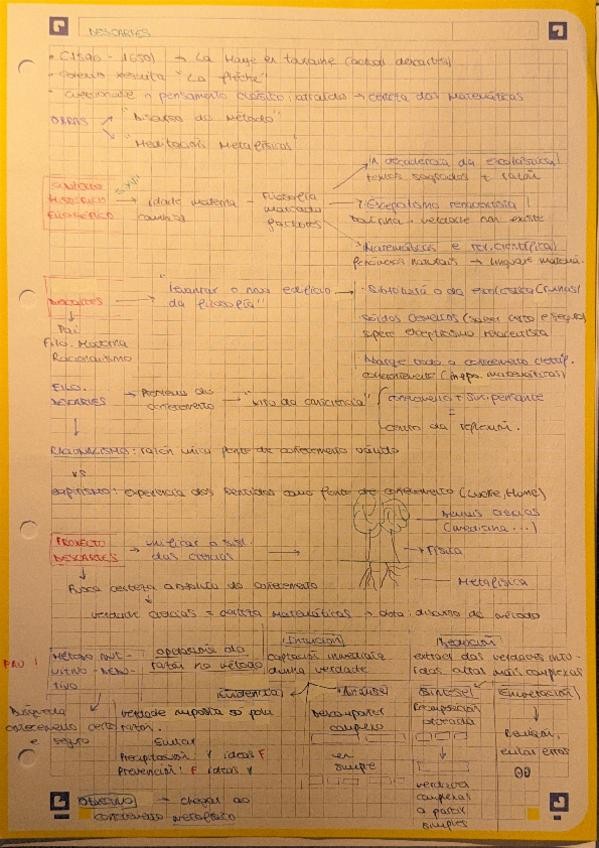 DESCARTES
• (1596 - 1650) → La Haye en Touraine (actual descartes)
• Colexio xesuíta "La flèche"
pensamento clásico, atraído → certeza das matemáticas
OBRAS
"Discurso do método"
"Meditacións Metafísicas"
CONTEXTO HISTÓRICO FILOSÓFICO
→ idade moderna
cambios
Filosofía marcada factores
A decadencia da escolástica
temas sagrados + razón
Escepticismo renacentista
Doutrina → verdade non existe
Matemáticas e rev. científica
fenómenos naturais → linguaxe matemá.
DESCARTES
Pai
Filo. Moderna
Racionalismo
"Levantar o novo edificio da filosofía"
Substituirá o da escolástica (ruínas)
Sólidos cimentos (saber certo e seguro)
supere escepticismo renacentista
Abarque todo o coñecemento científ.
FILO. DESCARTES
→ Problema do coñecemento
→ "xiro da consciencia"
coñecemento + sux. pensante
=
centro da reflexión.
RACIONALISMO: razón única fonte de coñecemento válido
vs
EMPIRISMO: experiencia dos sentidos como fonte de coñecemento (Locke, Hume)
PROXECTO DESCARTES
→ unificar o sist. das ciencias
Demais ciencias (medicina ...)
→ Física
Metafísica
Busca certeza absoluta do coñecemento
verdade ciencias = certeza matemáticas → obra: discurso do método
PAU!
MÉTODO INTUITIVO-DEDUTIVO
operacións da razón no método
Intuición
captación inmediata dunha verdade
Dedución
extraer das verdades intuídas outras máis complexas
Búsqueda coñecemento certo e seguro
Evidencia
verdade imposta só pola razón.
Evitar
Precipitación: V ideas F
Prevención: F ideas V
Análise
Descompoñer complexo
en
simple
Síntese
Recomposición ordenada
verdades complexas a partir simples
Enumeración
Revisión, evitar erros
OBXECTIVO → chegar ao coñecemento metafísico